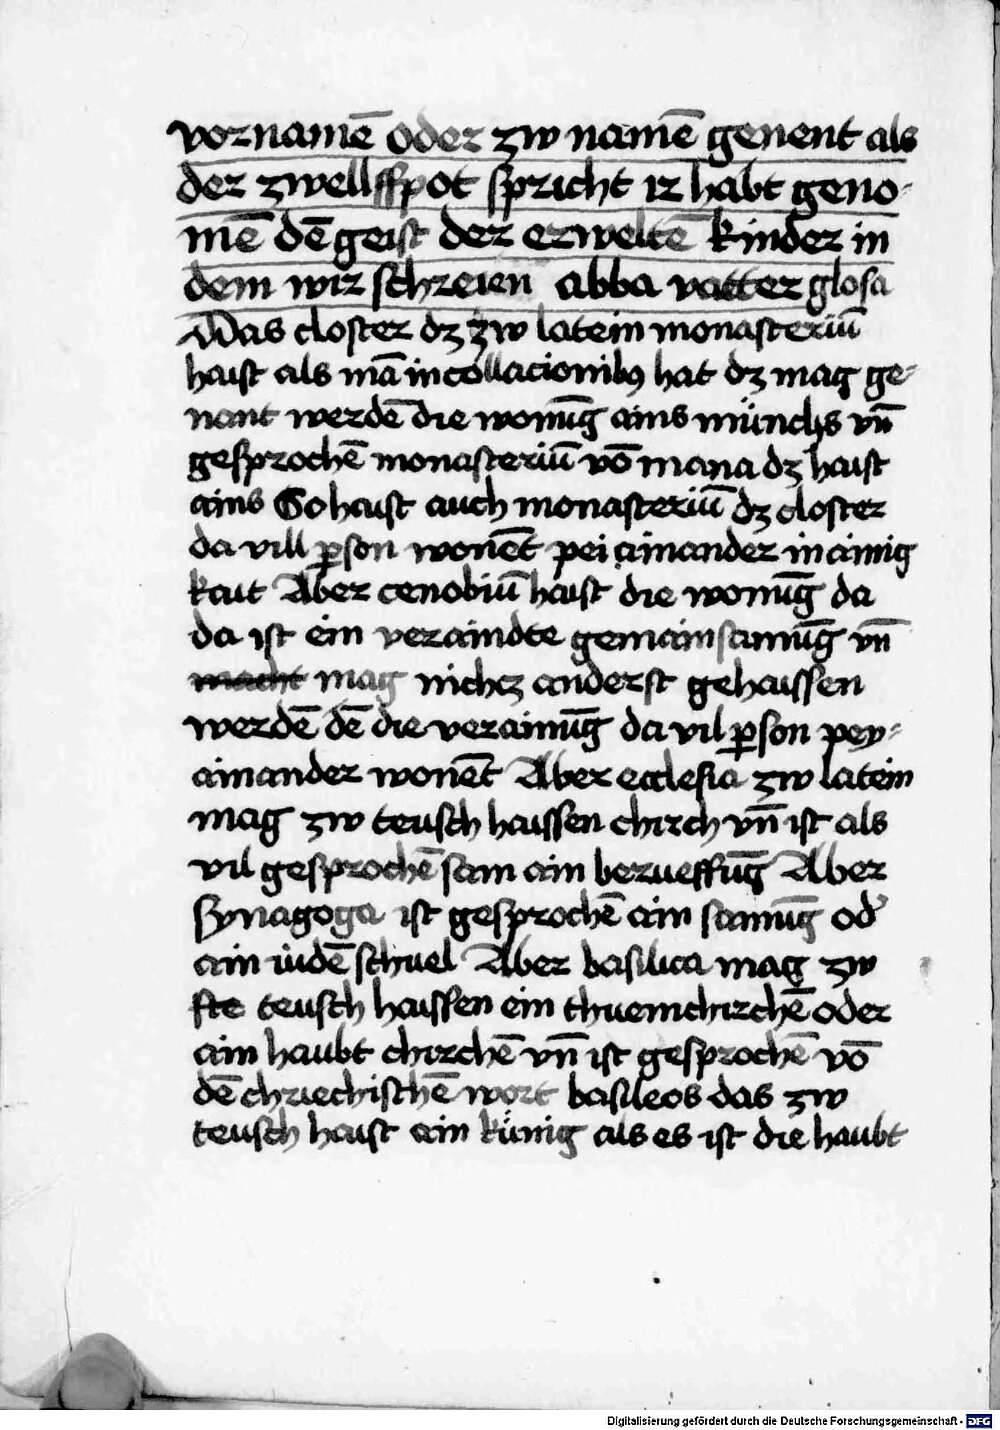 vornamē oder zw namē genent als
der zwellffpot spricht ir habt geno-
mē dē geist der erweltē kinder in
dem wir schreien abba vatter glosa
Was closter dz zw latein monasteriū
haist als mā in collacionibꝰ hat dz mag ge-
nant werdē die wonūg ains münchs vn̄
gesprochē monasteriū vō mana dz haist
ains So haist auch monasteriū dz closter
da vill ꝑson wonēt pei ainander in ainig
kait Aber cenobiū haist die wonūg da
da ist ein veraindte gemainsamūg vn̄
macht mag nichcz anderst gehaissen
werdē dē die verainūg da vil ꝑson pey-
ainander wonēt Aber ecclesia zw latein
mag zw teusch haissen chirch vn̄ ist als
vil gesprochē sam ain berueffūg Aber
Synagoga ist gesprochē ain samūg od̕
ain iudē schuel Aber basilica mag zw
ste teusch haissen ein thuemchirchē oder
ain haubt chirchē vn̄ ist gesprochē vō
dē chriechischē wort basileos das zw
teusch haist ain künig als es ist die haubt
Digitalisierung gefördert durch die Deutsche Forschungsgemeinschaft - DFG